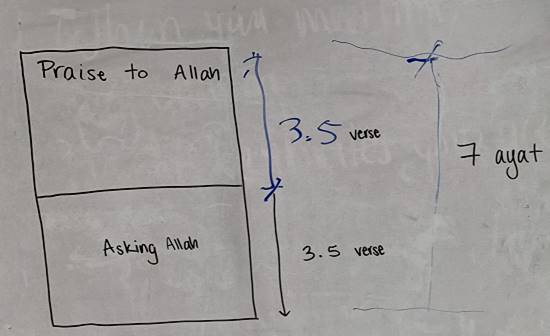 Praise to Allah
3.5 verse
7 ayat
Asking Allah
3.5 verse